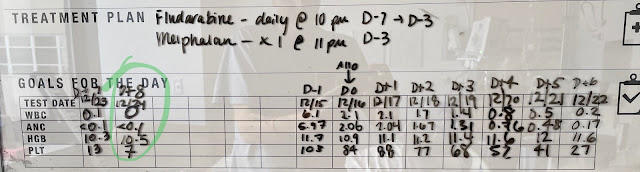 TREATMENT PLAN Fludarabine - daily @ 10 pm D-7 → D-3
Melphalan - x 1 @ 11 pm D-3
Allo
GOALS FOR THE DAY D+7 D+8 D-1 D0 D+1 D+2 D+3 D+4 D+5 D+6
TEST DATE 12/23 12/24 12/15 12/16 12/17 12/18 12/19 12/20 12/21 12/22
WBC 0.1 0 6.1 2.1 2.1 1.7 1.4 0.8 0.5 0.2
ANC <0.1 <0.1 5.97 2.06 2.04 1.67 1.31 0.76 0.48 0.17
HGB 10.3 10.5 11.7 10.9 11.1 11.2 11.4 11.6 12 11.6
PLT 13 7 103 84 88 77 68 52 41 27